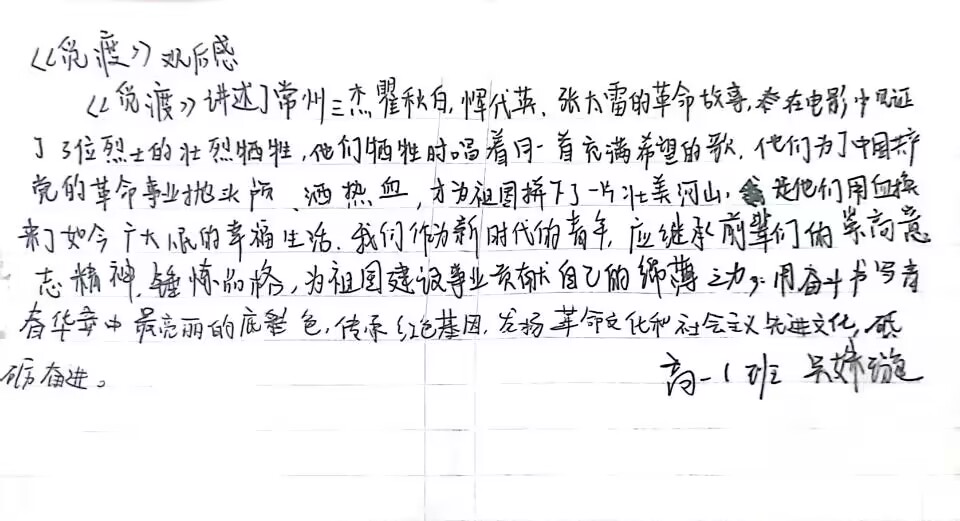 《觅渡》观后感
《觅渡》讲述了常州三杰瞿秋白、恽代英、张太雷的革命故事,在电影中见证
了3位烈士的壮烈牺牲,他们牺牲时唱着同一首充满希望的歌.他们为了中国共产
党的革命事业抛头颅、洒热血,才为祖国拼下了一片壮美河山,是他们用血换
来了如今广大人民的幸福生活.我们作为新时代的青年,应继承前辈们的崇高意
志精神,锤炼品格,为祖国建设事业贡献自己的绵薄之力,用奋斗书写青
春华章中最亮丽的底色,传承红色基因,发扬革命文化和社会主义先进文化,砥
砺奋进。
高一1班 吴